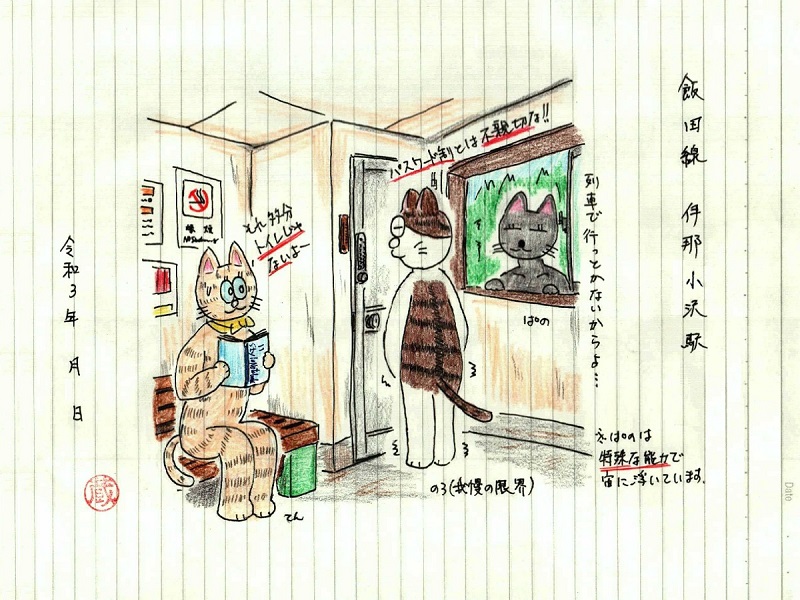 飯田線 伊那小沢駅
列車で行っとかないからよ…
パスワード制とは不親切な!!
それ多分
トイレじゃ
ないよ〜
禁煙
No Smoking
ぱの
てん
のろ(我慢の限界)
※ぱのは
特殊な能力で
宙に浮いています。
令和3年 月 日
蔵
Date